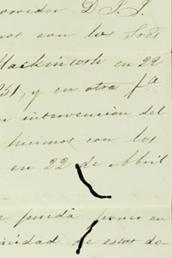 corredor D. J. J.
nos con los Sres
Mackintosh en 22
851, y en otra fha
intervencion del
hicimos con los
en 22 de Abril
puedà poner en
nidad de estos de-